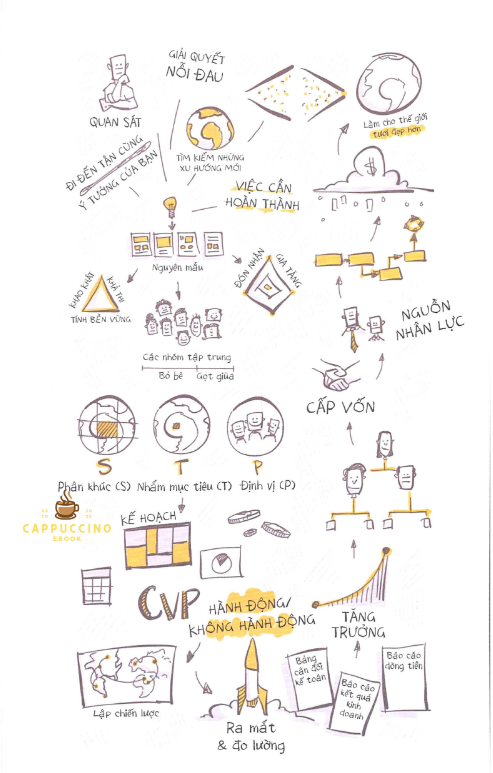 QUAN SÁT
GIẢI QUYẾT
NỖI ĐAU
ĐI ĐẾN TẬN CÙNG
Ý TƯỞNG CỦA BẠN
TÌM KIẾM NHỮNG
XU HƯỚNG MỚI
VIỆC CẦN
HOÀN THÀNH
Làm cho thế giới
tươi đẹp hơn
$
Nguyên mẫu
KHAO KHÁT
KHẢ THI
TÍNH BỀN VỮNG
ĐÓN NHẬN
GIA TĂNG
Các nhóm tập trung
Bỏ bê
Gọt giũa
NGUỒN
NHÂN LỰC
CẤP VỐN
S
T
P
Phân khúc (S)
Nhắm mục tiêu (T)
Định vị (P)
CAPPUCCINO
EBOOK
KẾ HOẠCH
CVP
HÀNH ĐỘNG/
KHÔNG HÀNH ĐỘNG
TĂNG
TRƯỞNG
Lập chiến lược
Ra mắt
& đo lường
Bảng
cân đối
kế toán
Báo cáo
kết quả
kinh
doanh
Báo cáo
dòng tiền